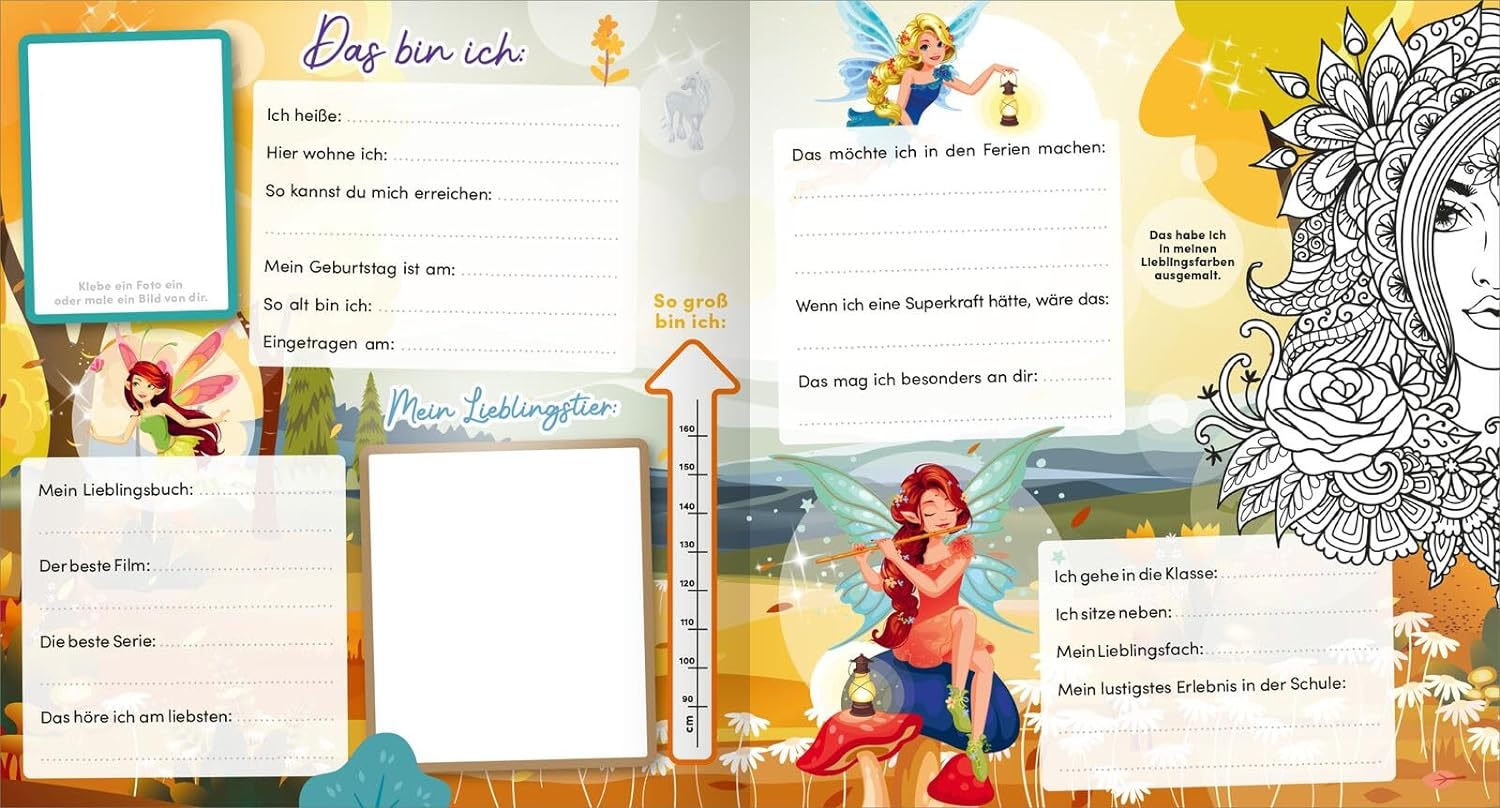 Das bin ich:
Klebe ein Foto ein
oder male ein Bild von dir.
Ich heiße:
Hier wohne ich:
So kannst du mich erreichen:
Mein Geburtstag ist am:
So alt bin ich:
Eingetragen am:
Mein Lieblingsbuch:
Der beste Film:
Die beste Serie:
Das höre ich am liebsten:
Mein Lieblingstier:
So groß
bin ich:
160
150
140
130
120
110
100
90
cm
Das möchte ich in den Ferien machen:
Wenn ich eine Superkraft hätte, wäre das:
Das mag ich besonders an dir:
Das habe ich
in meinen
Lieblingsfarben
ausgemalt.
Ich gehe in die Klasse:
Ich sitze neben:
Mein Lieblingsfach:
Mein lustigstes Erlebnis in der Schule: